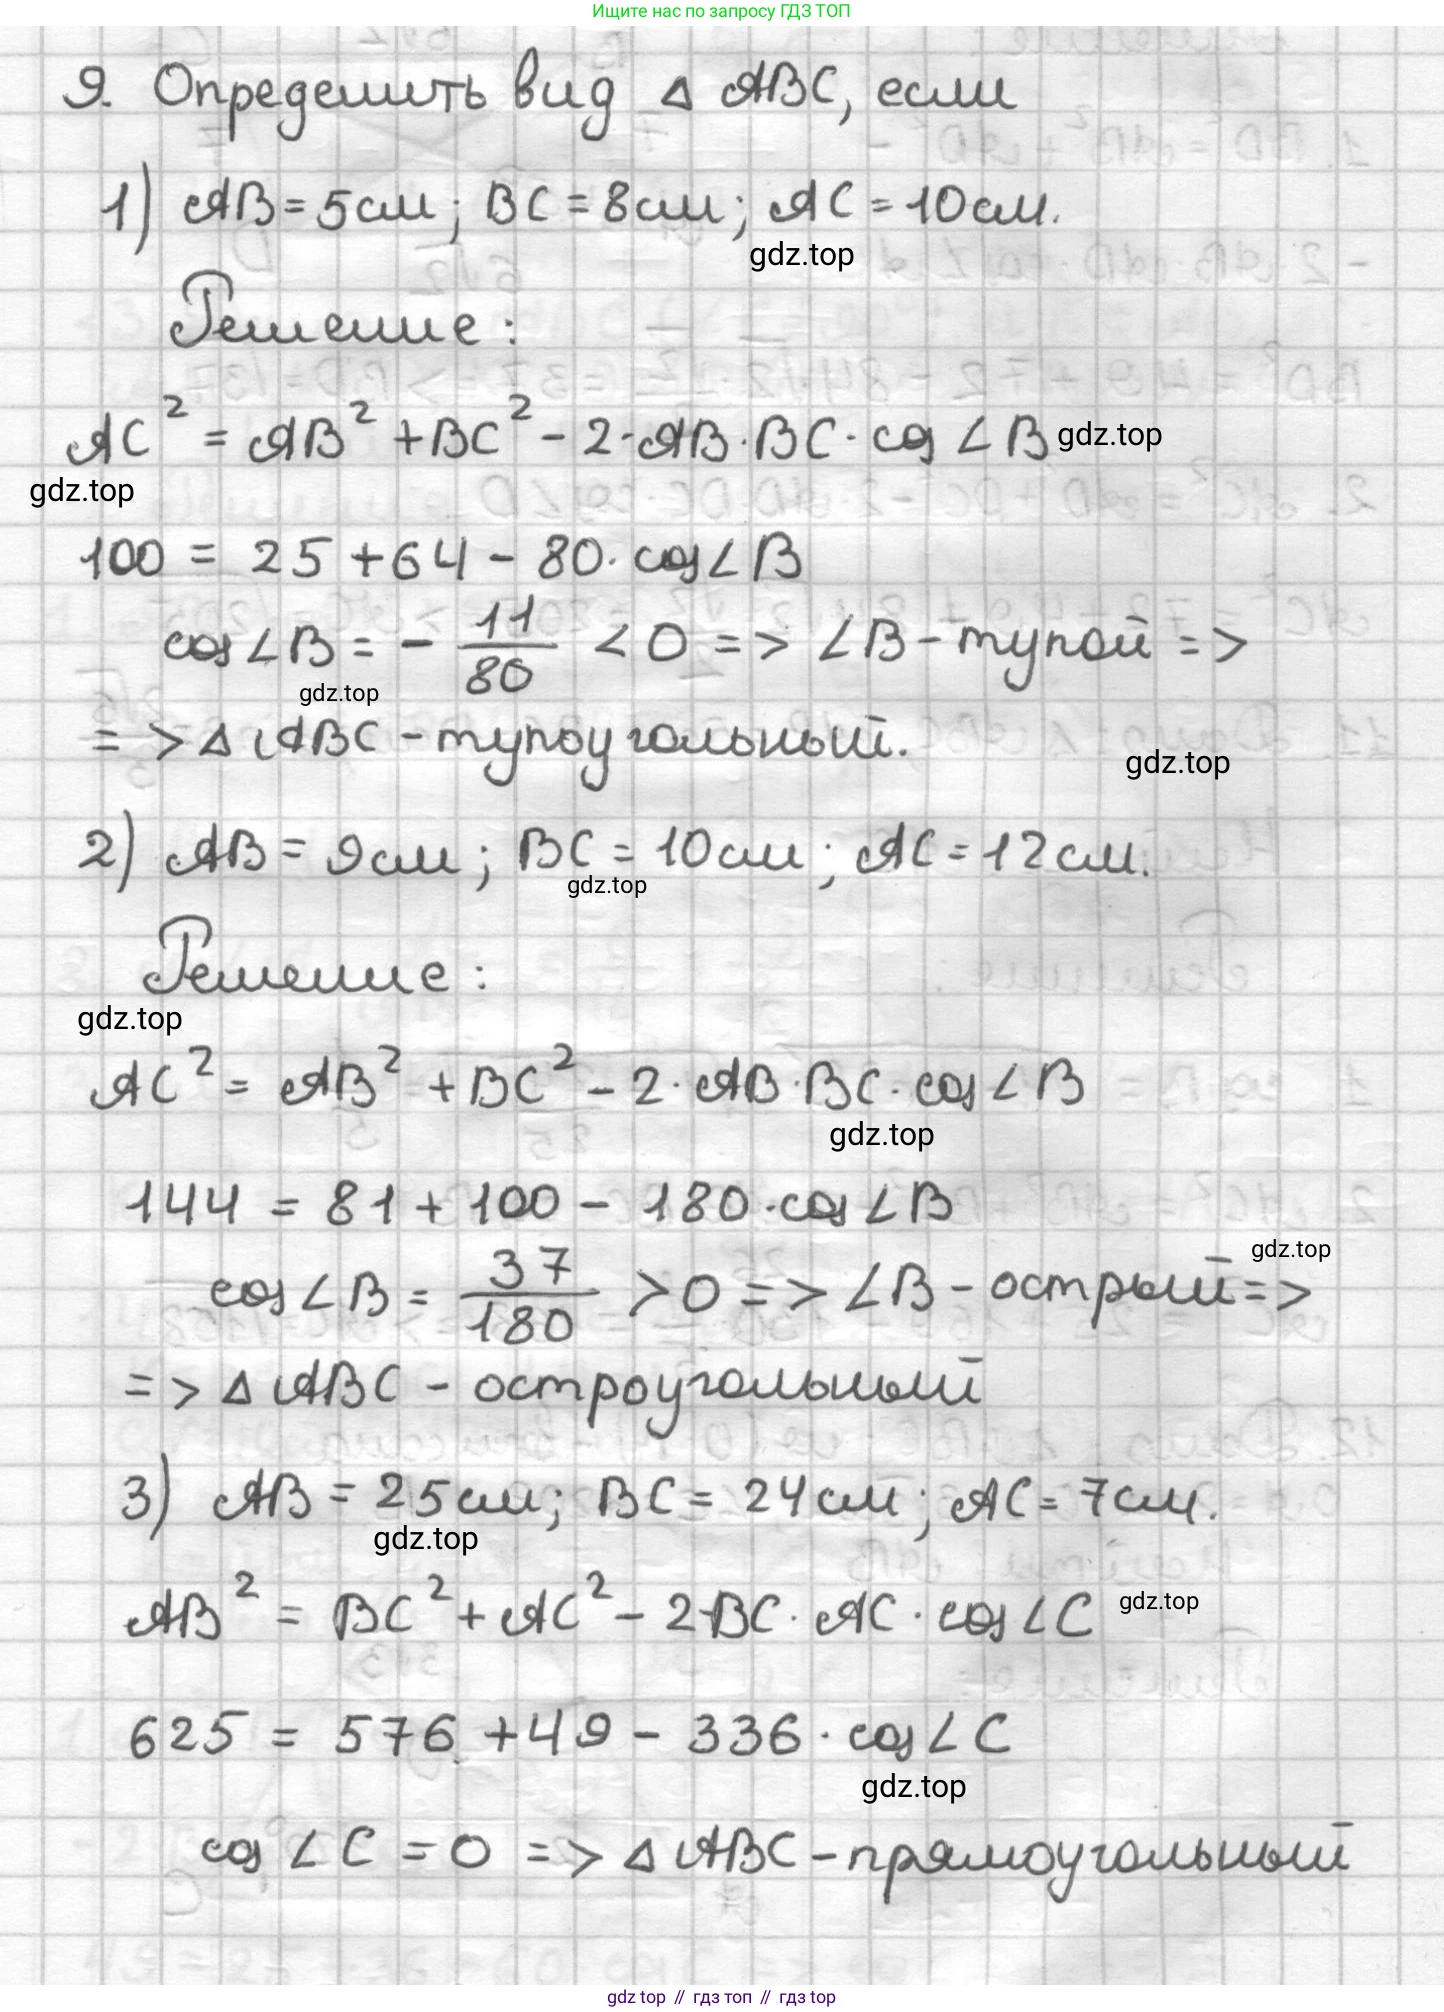 Ищите нас по запросу ГДЗ ТОП
9. Определить вид △ ABC, если
1) AB = 5см; BC = 8см; AC = 10см.
gdz.top
Решение:
AC² = AB² + BC² - 2·AB·BC·cos∠B gdz.top
gdz.top
100 = 25 + 64 - 80·cos∠B
cos∠B = - 11/80 < 0 => ∠B - тупой =>
gdz.top
=> △ ABC - тупоугольный.
gdz.top
2) AB = 9см; BC = 10см; AC = 12см.
gdz.top
Решение:
gdz.top
AC² = AB² + BC² - 2·AB·BC·cos∠B
gdz.top
144 = 81 + 100 - 180·cos∠B
gdz.top
cos∠B = 37/180 > 0 => ∠B - острый =>
=> △ ABC - остроугольный
3) AB = 25см; BC = 24см; AC = 7см.
gdz.top
AB² = BC² + AC² - 2·BC·AC·cos∠C gdz.top
625 = 576 + 49 - 336·cos∠C
gdz.top
cos∠C = 0 => △ ABC - прямоугольный
gdz top // гдз топ // гдз top